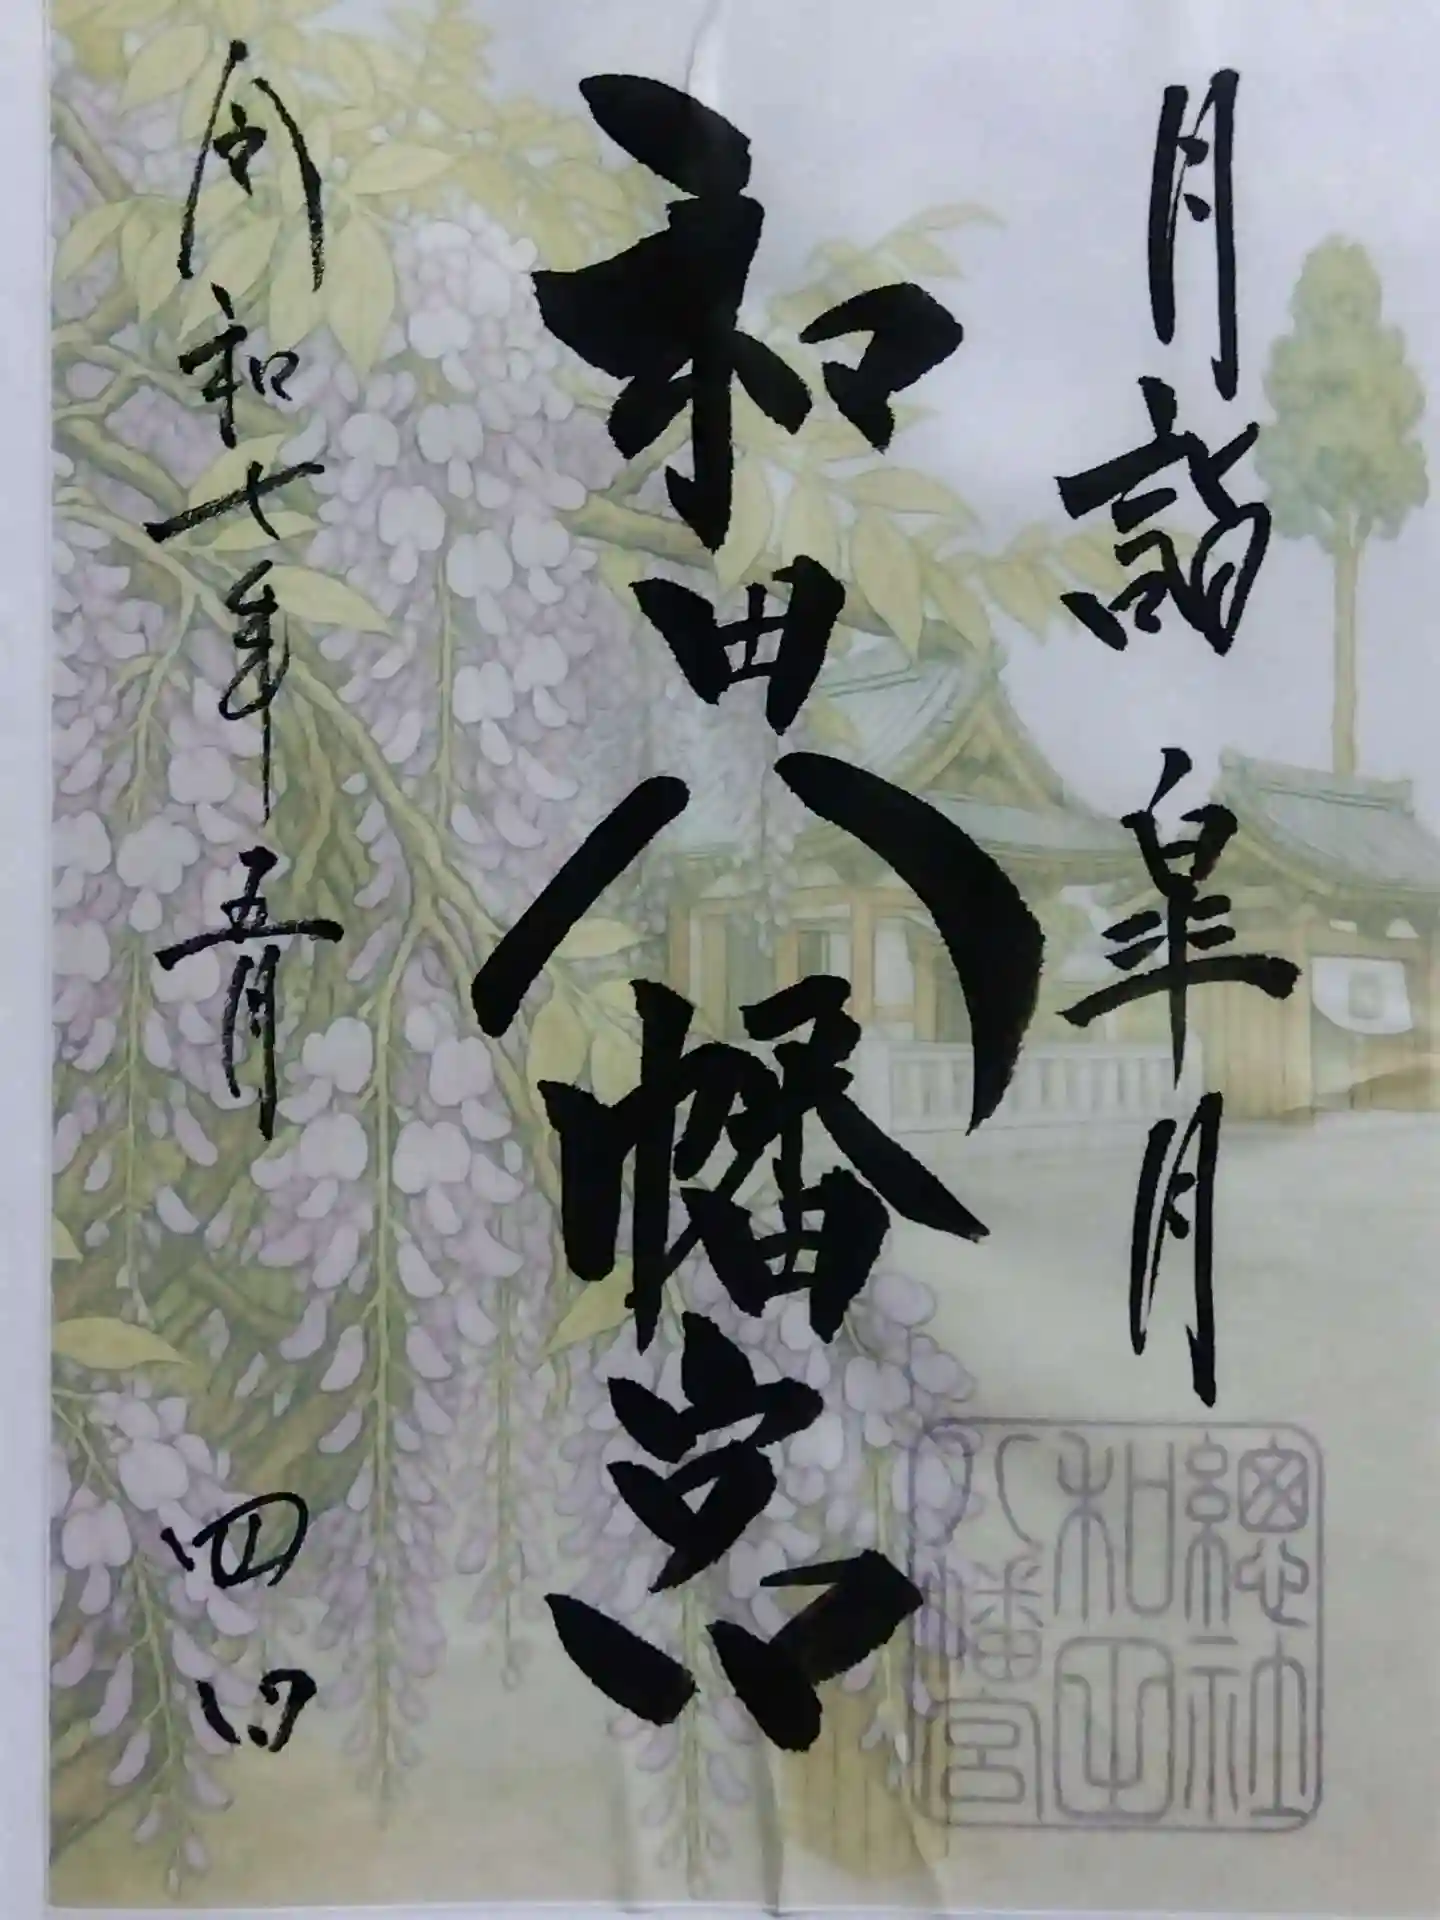 月詣 皐月
和田八幡宮
令和七年五月四日
總社
和田
八幡宮